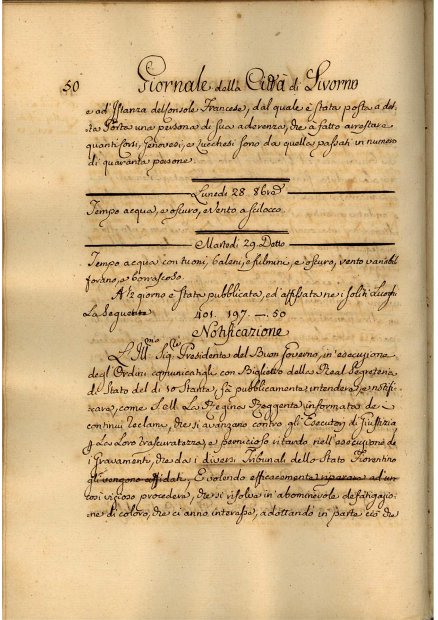 50 Giornale della Città di Livorno
e ad'Istanza del Console Francese, dal quale è stata posta a det-
ta Porta una persona di sua aderenza, che à fatto arrestare
quanti Corsi, Genovesi, e Lucchesi sono da quella passati in numero
di quaranta persone.
Lunedì 28. 8bre
Tempo acqua, e oscuro, e Vento a scilocco.
Martedì 29. Detto
Tempo acqua con tuoni, baleni, e fulmini, e oscuro, vento variabil
forano, e borrascoso.
A ½ giorno è stata pubblicata, ed'affissata ne i soliti Luoghi
La Seguente 401. 197. —. 50
Notificazione
L'Ill.mo Sig.re Presidente del Buon Governo, in'esecuzione
degl'Ordini comunicatigli con Biglietto della Real Segreteria
di Stato del dì 10 Stante, fà pubblicamente intendere, e notifi-
care, come S. M. La Regina Reggente informata de i
continui reclami, che si avanzano contro gli Esecutori di Giustizia
p La Loro trascuratezza, e pernicioso ritardo nell'esecuzione de
i Gravamenti, che da i diversi Tribunali dello Stato Fiorentino
gli vengono affidati. E volendo efficacemente riparare ad un
così vizioso procedere, che si risolve in'abominevole defatigazio-
ne di coloro, che ci anno interesse, adottando in parte ciò che